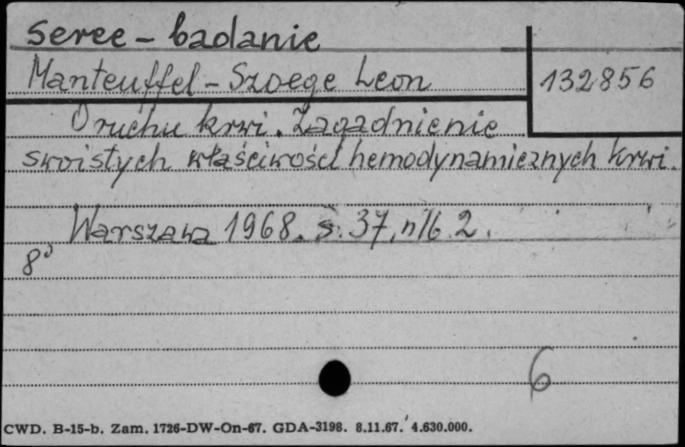 Serce - badanie
Manteuffel - Szoege Leon
132856
O ruchu krwi. Zagadnienie
swoistych właściwości hemodynamicznych krwi.
Warszawa 1968. s. 37, nlb 2.
8°
6
CWD. B-15-b. Zam. 1726-DW-On-67. GDA-3198. 8.11.67. 4.630.000.